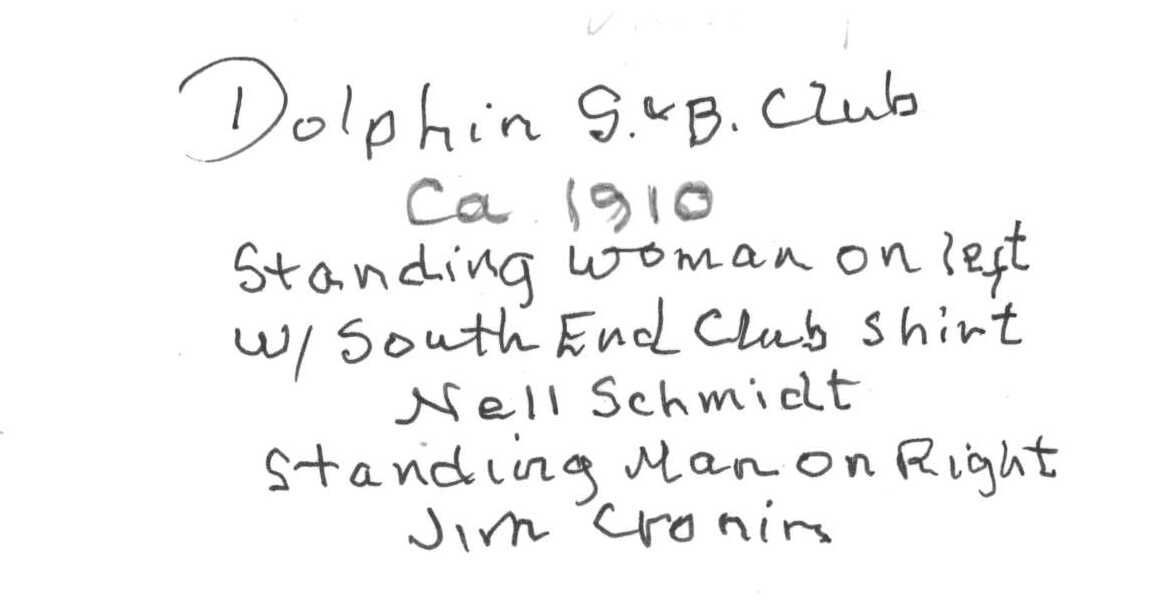 Dolphin S.&B. Club
Ca 1910
Standing woman on left
w/ South End Club shirt
Nell Schmidt
Standing Man on Right
Jim Cronin